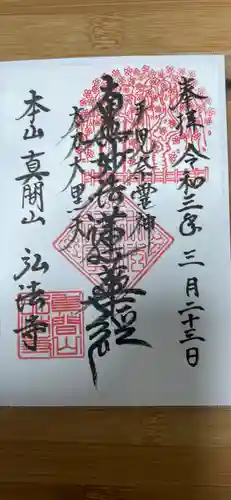 奉拝 令和三年 三月二十三日
手児奈霊神
南無妙法蓮華経
真間大黒天
本山 真間山 弘法寺